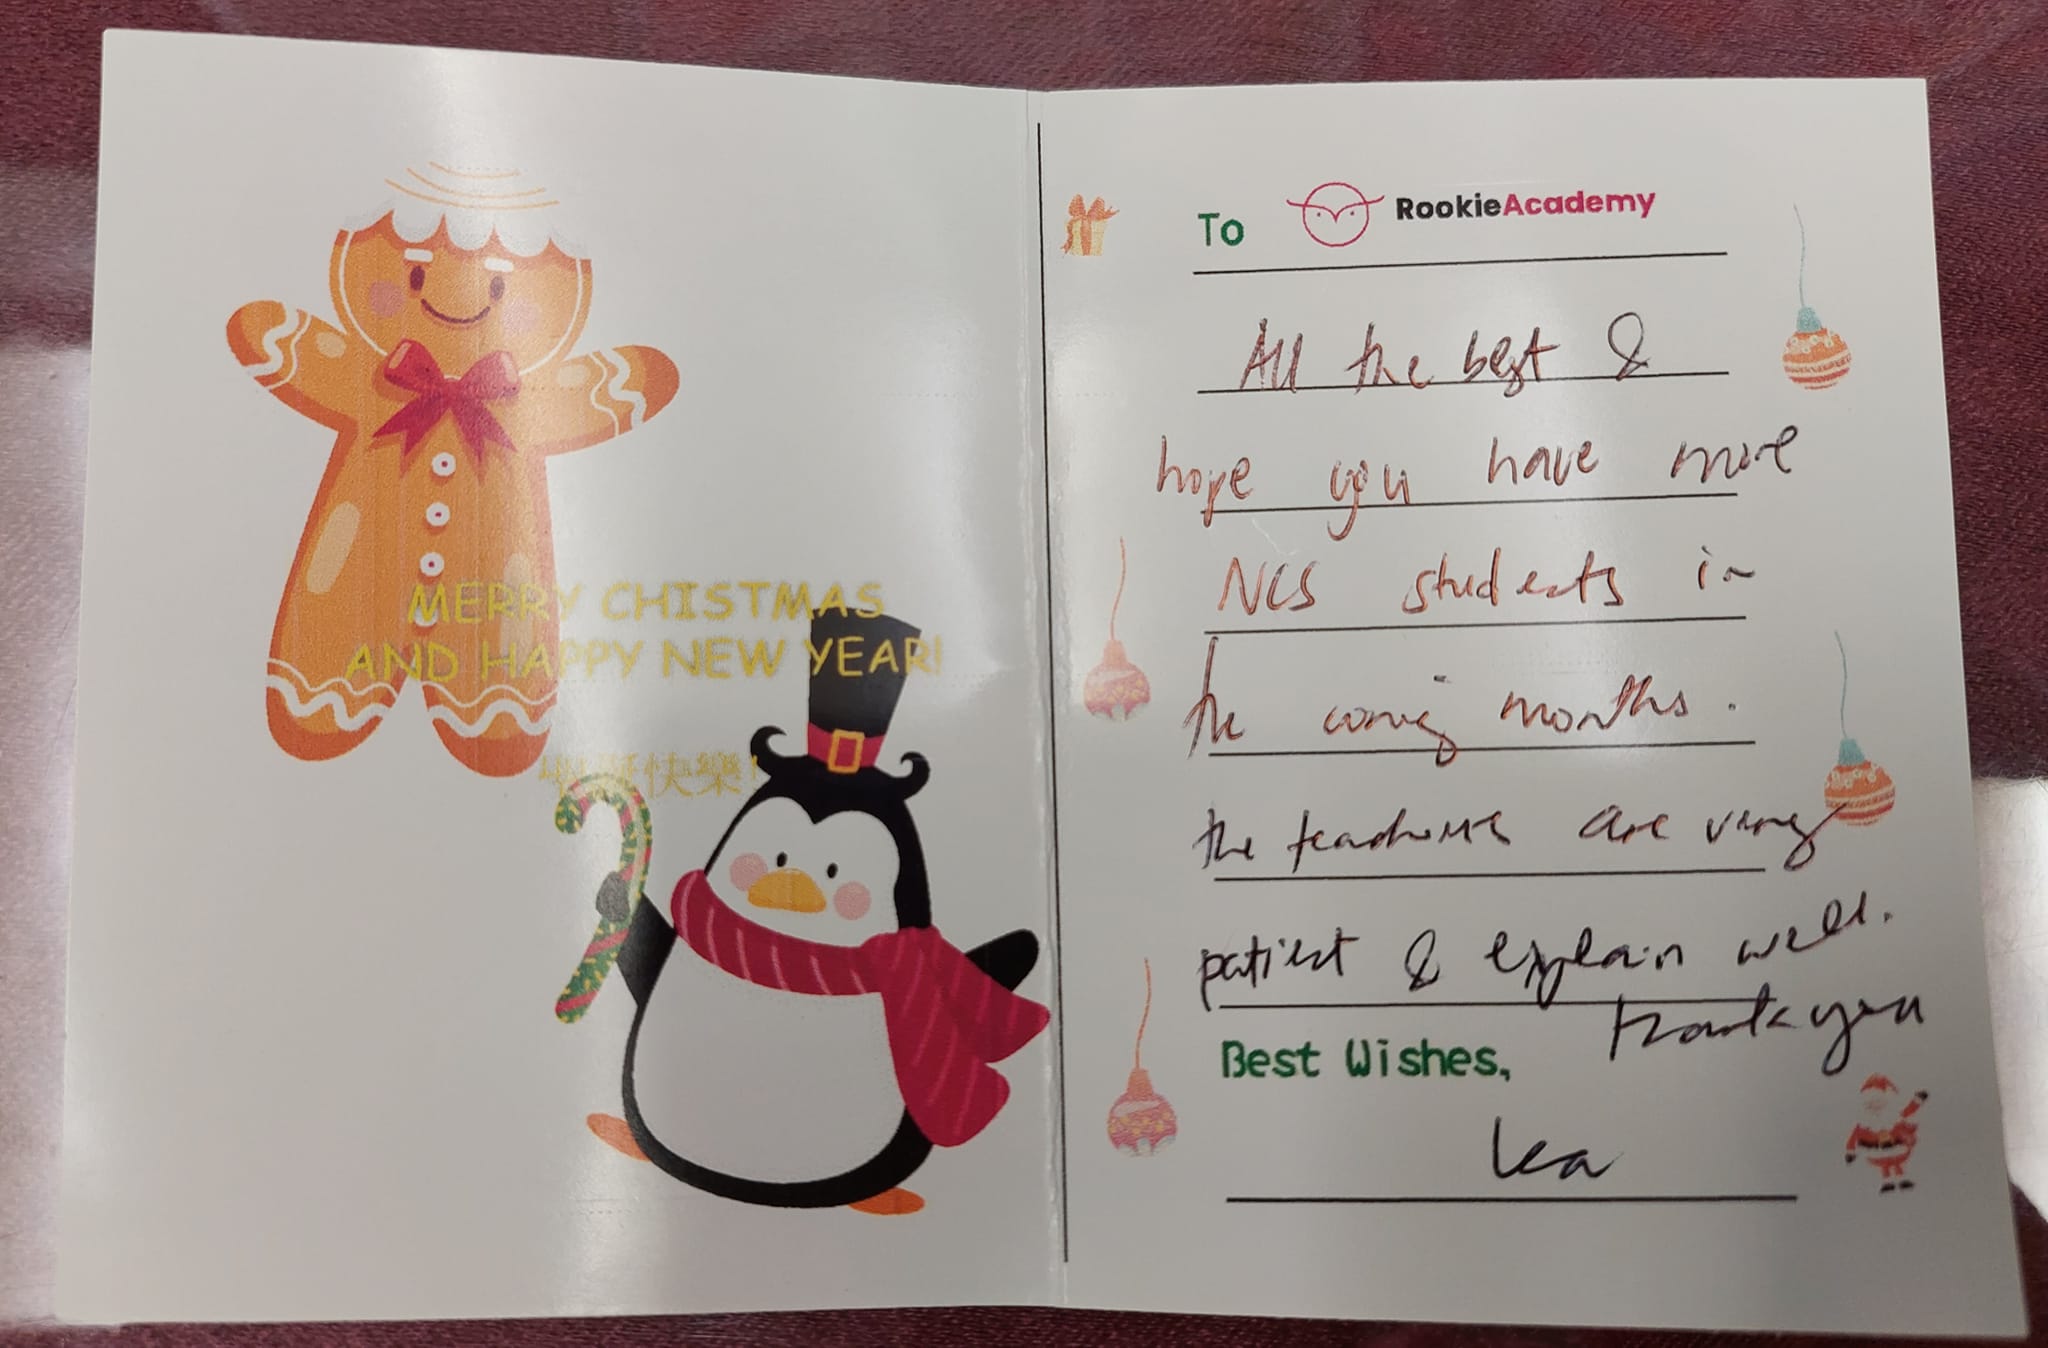 MERRY CHISTMAS
AND HAPPY NEW YEAR!
聖誕快樂!
To RookieAcademy
All the best &
hope you have more
NCS students in
the coming months.
the teachers are very
patient & explain well.
thank you
Best Wishes,